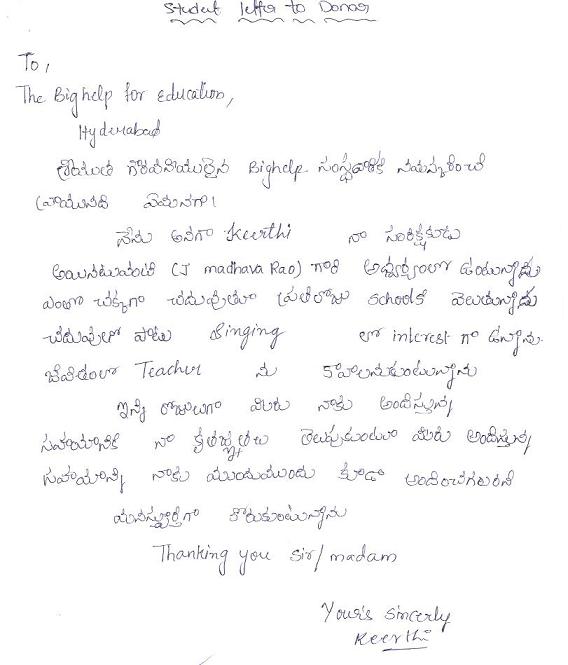 Student letter to Donor
To,
The Bighelp for education,
Hyderabad
శ్రీయుత గౌరవనీయులైన Bighelp సంస్థవారికి నమస్కరించి
వ్రాయునది ఏమనగా!
నేను అనగా Keerthi నా సంరక్షకుడు
అయినటువంటి (J madhava Rao) గారి ఆధ్వర్యంలో ఉంటున్నాను
ఎంతో చక్కగా చదువుతూ ప్రతిరోజు schoolకి వెలుతున్నాను
చదువుతో పాటు Singing లో interest గా ఉన్నాను.
జీవితంలో Teacher ను కావాలనుకుంటున్నాను
ఇన్ని రోజులుగా మీరు నాకు అందిస్తున్న
సహాయానికి నా కృతజ్ఞతలు తెలుపుకుంటూ మీరు అందిస్తున్న
సహాయాన్ని నాకు ముందుముందు కూడా అందించగలరని
మనస్ఫూర్తిగా కోరుకుంటున్నాను
Thanking you sir/madam
Your's sincerly
Keerthi